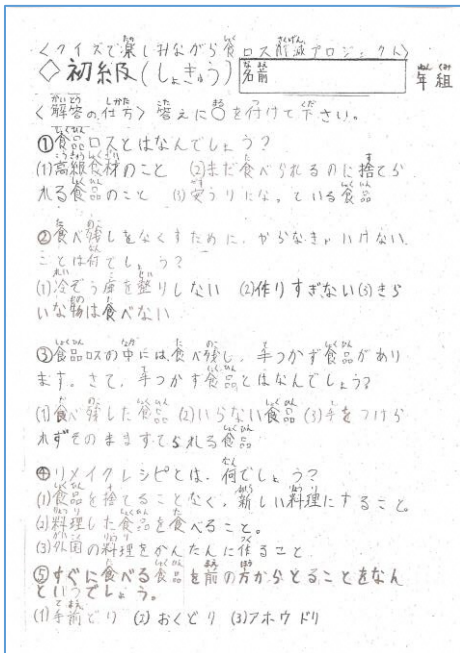 <クイズで楽しみながら食ロス削減プロジェクト>
◇初級(しょきゅう) 名前 年 組
<解答の仕方> 答えに○を付けて下さい。
①食品ロスとはなんでしょう?
(1)高級食材のこと (2)まだ食べられるのに捨てら
れる食品のこと (3)安うりになっている食品
②食べ残しをなくすために、やらなきゃいけない
ことは何でしょう?
(1)冷ぞう庫を整りしない (2)作りすぎない (3)きら
いな物は食べない
③食品ロスの中には、食べ残し、手つかず食品があり
ます。さて、手つかず食品とはなんでしょう?
(1)食べ残した食品 (2)いらない食品 (3)手をつけら
れずそのまますてられる食品
④リメイクレシピとは、何でしょう?
(1)食品を捨てることなく、新しい料理にすること。
(2)料理した食品を食べること。
(3)外国の料理をかんたんに作ること
⑤すぐに食べる食品を前の方からとることをなん
というでしょう。
(1)手前どり (2)おくどり (3)アホウドリ